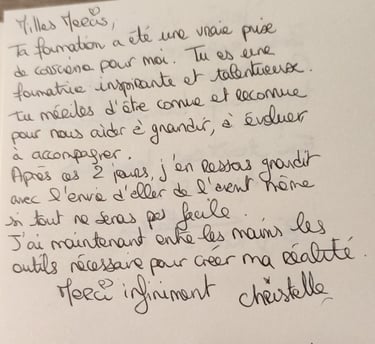 Milles Mercis,
Ta formation a été une vraie prise
de conscience pour moi. Tu es une
formatrice inspirante et talentueuse.
Tu mérites d'être connue et reconnue
pour nous aider à grandir, à évoluer
à accompagner.
Après ces 2 jours, j'en ressors grandit
avec l'envie d'aller de l'avant même
si tout ne seras pas facile.
J'ai maintenant entre les mains les
outils nécessaire pour créer ma réalité.
Merci infiniment Christelle